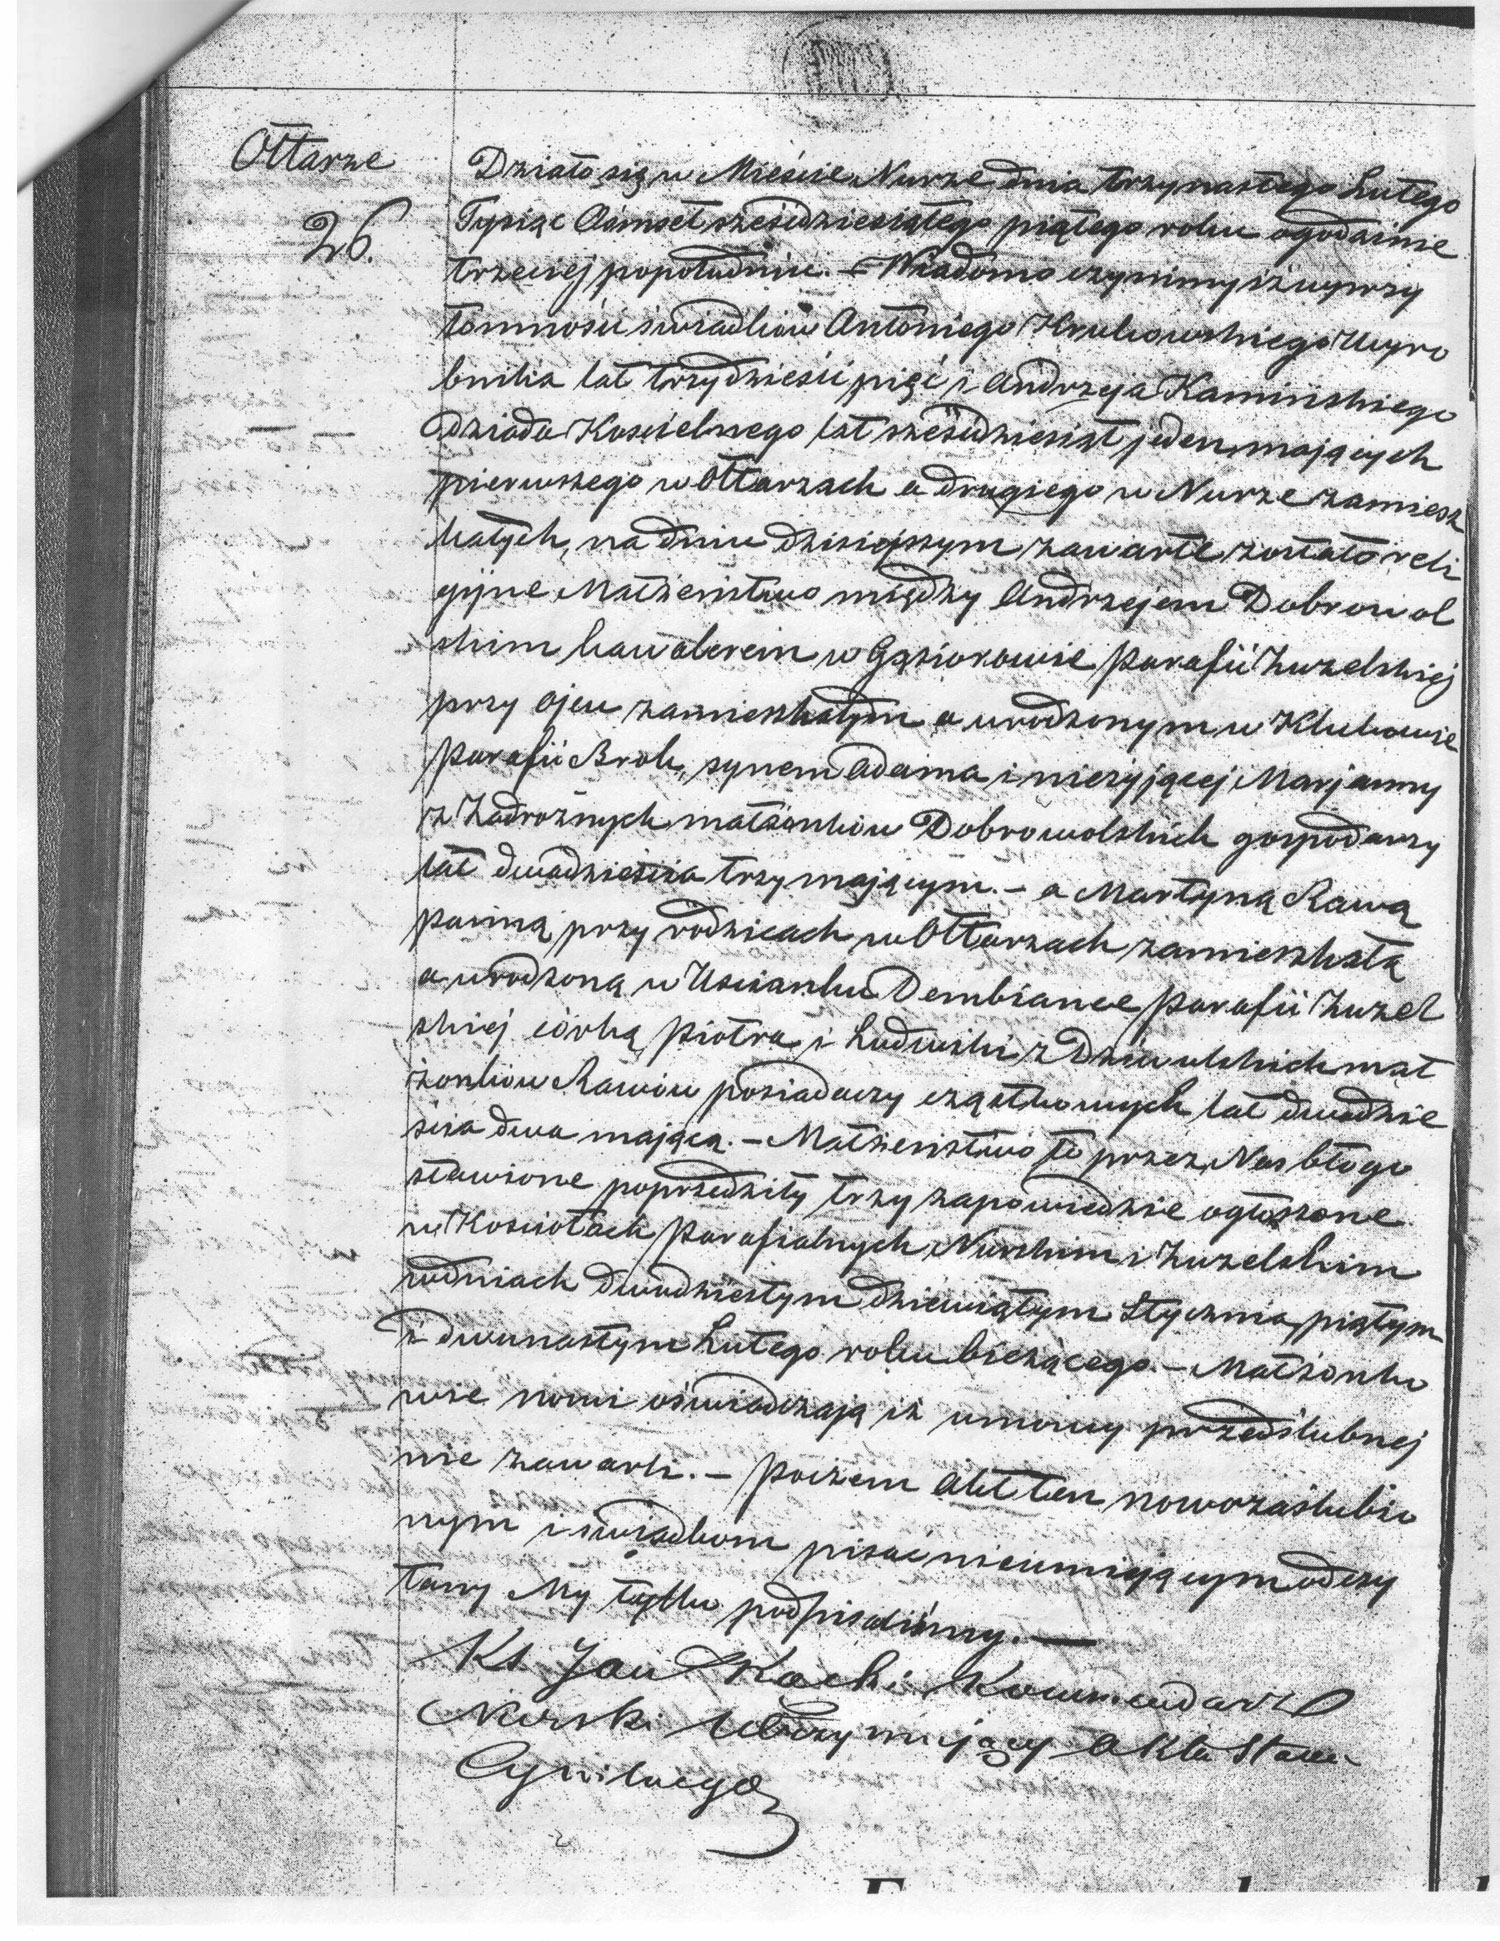 Ołtarze
26.
Działo się w Mieście Nurze dnia trzynastego Lutego
Tysiąc Osmset sześćdziesiątego piątego roku o godzinie
trzeciej popołudniu. – Wiadomo czynimy iż w przy
tomności świadków Antoniego Krukowskiego Wyro
bnika lat trzydzieści pięć i Andrzeja Kamińskiego
Dziada Kościelnego lat sześćdziesiąt jeden mających
pierwszego w Ołtarzach a drugiego w Nurze zamiesz
kałych, na dniu dzisiejszym zawarte zostało reli
gijne Małżeństwo między Andrzejem Dobrowol
skim kawalerem w Gąsiorowie parafii Zuzelskiej
przy ojcu zamieszkałym a urodzonym w Klukowie
parafii Brok, synem Adama i nieżyjącej Marjanny
z Zadrożnych małżonków Dobrowolskich gospodarzy
lat dwadzieścia trzy mającym. – a Martyną Rawą
panną przy rodzicach w Ołtarzach zamieszkałą
a urodzoną w Uscianku Dembiance parafii Zuzel
skiej córką Piotra i Ludwiki z Dziewulskich mał
żonków Rawów posiadaczy cząstkowych lat dwadzie
ścia dwa mającą. – Małżeństwo to przez Nas błogo
sławione poprzedziły trzy zapowiedzie ogłoszone
w Kościołach parafialnych Nurskim i Zuzelskim
w dniach dwudziestym dziewiątym Stycznia, piątym
i dwunastym Lutego roku bieżącego. – Małżonko
wie nowi oświadczają iż umowy przedślubnej
nie zawarli. – poczem Akt ten nowozaślubio
nym i świadkom pisać nieumiejącym odczy
tany My tylko podpisaliśmy. —
Ks Jan Kommendarz
Nurski Utrzymujący Akta Stanu
Cywilnego